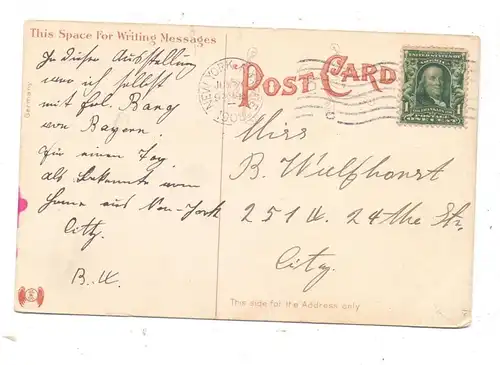 This Space for Writing Messages
In dieser Ausstellung
war ich selbst
mit Frl. Bang
von Bayern.
Für einen Tag
als Bekannte vom
Home aus New-York
City.
B. W.
Germany
POST CARD
NEW YORK
Miss
B. Wulfhorst
251 W. 24the Str.
City.
This side for the Address only
1